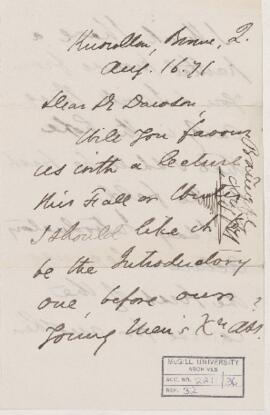 Knowlton, Brome, Q.
Aug. 16. 71
Dear Dr Dawson,
Will you favour
us with a lecture
this Fall or Winter
I should like it
be the Introductory
one, before our
Young Men's Xn Ass.
McGILL UNIVERSITY
ARCHIVES
ACC. NO. 221 / 36
REF. 32